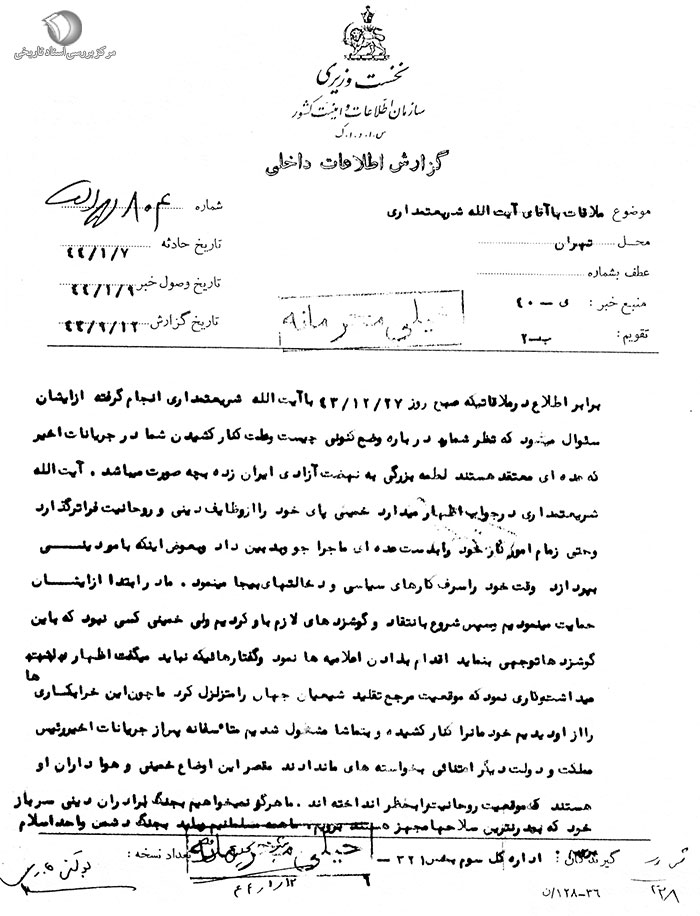 مرکز بررسی اسناد تاریخی
نخست وزیری
سازمان اطلاعات و امنیت کشور
س.ا.و.ا.ک
گزارش اطلاعات داخلی
موضوع ملاقات با آقای آیت الله شریعتمداری
محل تهران
عطف بشماره
منبع خبر : ی – ۴۰
تقویم : ب–۲
شماره ۸۰۴
تاریخ حادثه ۴۴/۱/۷
تاریخ وصول خبر ۴۴/۱/۹
تاریخ گزارش ۴۳/۹/۱۲
خیلی محرمانه
برابر اطلاع در ملاقاتیکه صبح روز ۴۳/۱۲/۲۷ با آیت الله شریعتمداری انجام گرفته ازایشان
سئوال میشود که نظر شما در باره وضع کنونی چیست وعلت کنار کشیدن شما در جریانات اخیر
که عده ای معتقد هستند لطمه بزرگی به نهضت آزادی ایران زده بچه صورت میباشد . آیت الله
شریعتمداری در جواب اظهار میدارد خمینی پای خود را ازوظایف دینی و روحانیت فراتر گذارد
وحتی زمام امور کار خود را بدست عده ای ماجرا جو و بد بین داد وبعوض اینکه بامور دینــی
بپردازد وقت خود را صرف کارهای سیاسی و دخالتهای بیجا مینمود . ما در ابتدا ازایشــان
حمایت مینمودیم وسپس شروع بانتقاد و گوشزد های لازم باو کردیم ولی خمینی کسی نبود که باین
گوشزد ها توجهی بنماید اقدام بدادن اعلامیه ها نمود وگفتارهائیکه نباید میگفت اظهار
میداشت وکاری نمود که موقعیت مرجع تقلید شیعیان جهان را متزلزل کرد ما چون این خرابکاری ها
را از او دیدیم خود مانرا کنار کشیده و بتماشا مشغول شدیم متاٴسفانه پس از جریانات اخیر رئیس
مملکت و دولت دیگر اعتنائی بخواسته های ما ندادند مقصر این اوضاع خمینی و هوا داران او
هستند که موقعیت روحانیت را بخطر انداخته اند . ما هرگز نمیخواهیم بجنگ برادران دینی سرباز
خود که بمدرنترین سلاحها مجهز هستند برویم . ما همه مسلمانیم وباید بجنگ دشمن واحد اسلام
گیرندگان : اداره کل سوم بخش ۳۲۱ –
تعداد نسخه :
خیلی محرمانه
۴۴/۱/۱۲
۳۶–۱۲۸/ن